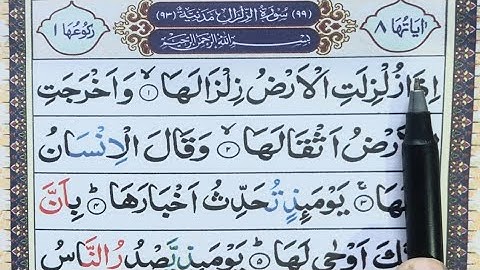 اٰيَاتُهَا ٨ (٩٩) سُوْرَةُ الزِّلْزَالِ مَدَنِيَّةٌ (٩٣) رُكُوْعُهَا ١
بِسْمِ اللّٰهِ الرَّحْمٰنِ الرَّحِيْمِ
اِذَا زُلْزِلَتِ الْاَرْضُ زِلْزَالَهَا ۙ١ وَاَخْرَجَتِ
الْاَرْضُ اَثْقَالَهَا ۙ٢ وَقَالَ الْاِنْسَانُ
يَوْمَئِذٍ تُحَدِّثُ اَخْبَارَهَا ۙ٤ بِاَنَّ
اَوْحٰى لَهَا ۙ٥ يَوْمَئِذٍ يَّصْدُرُ النَّاسُ